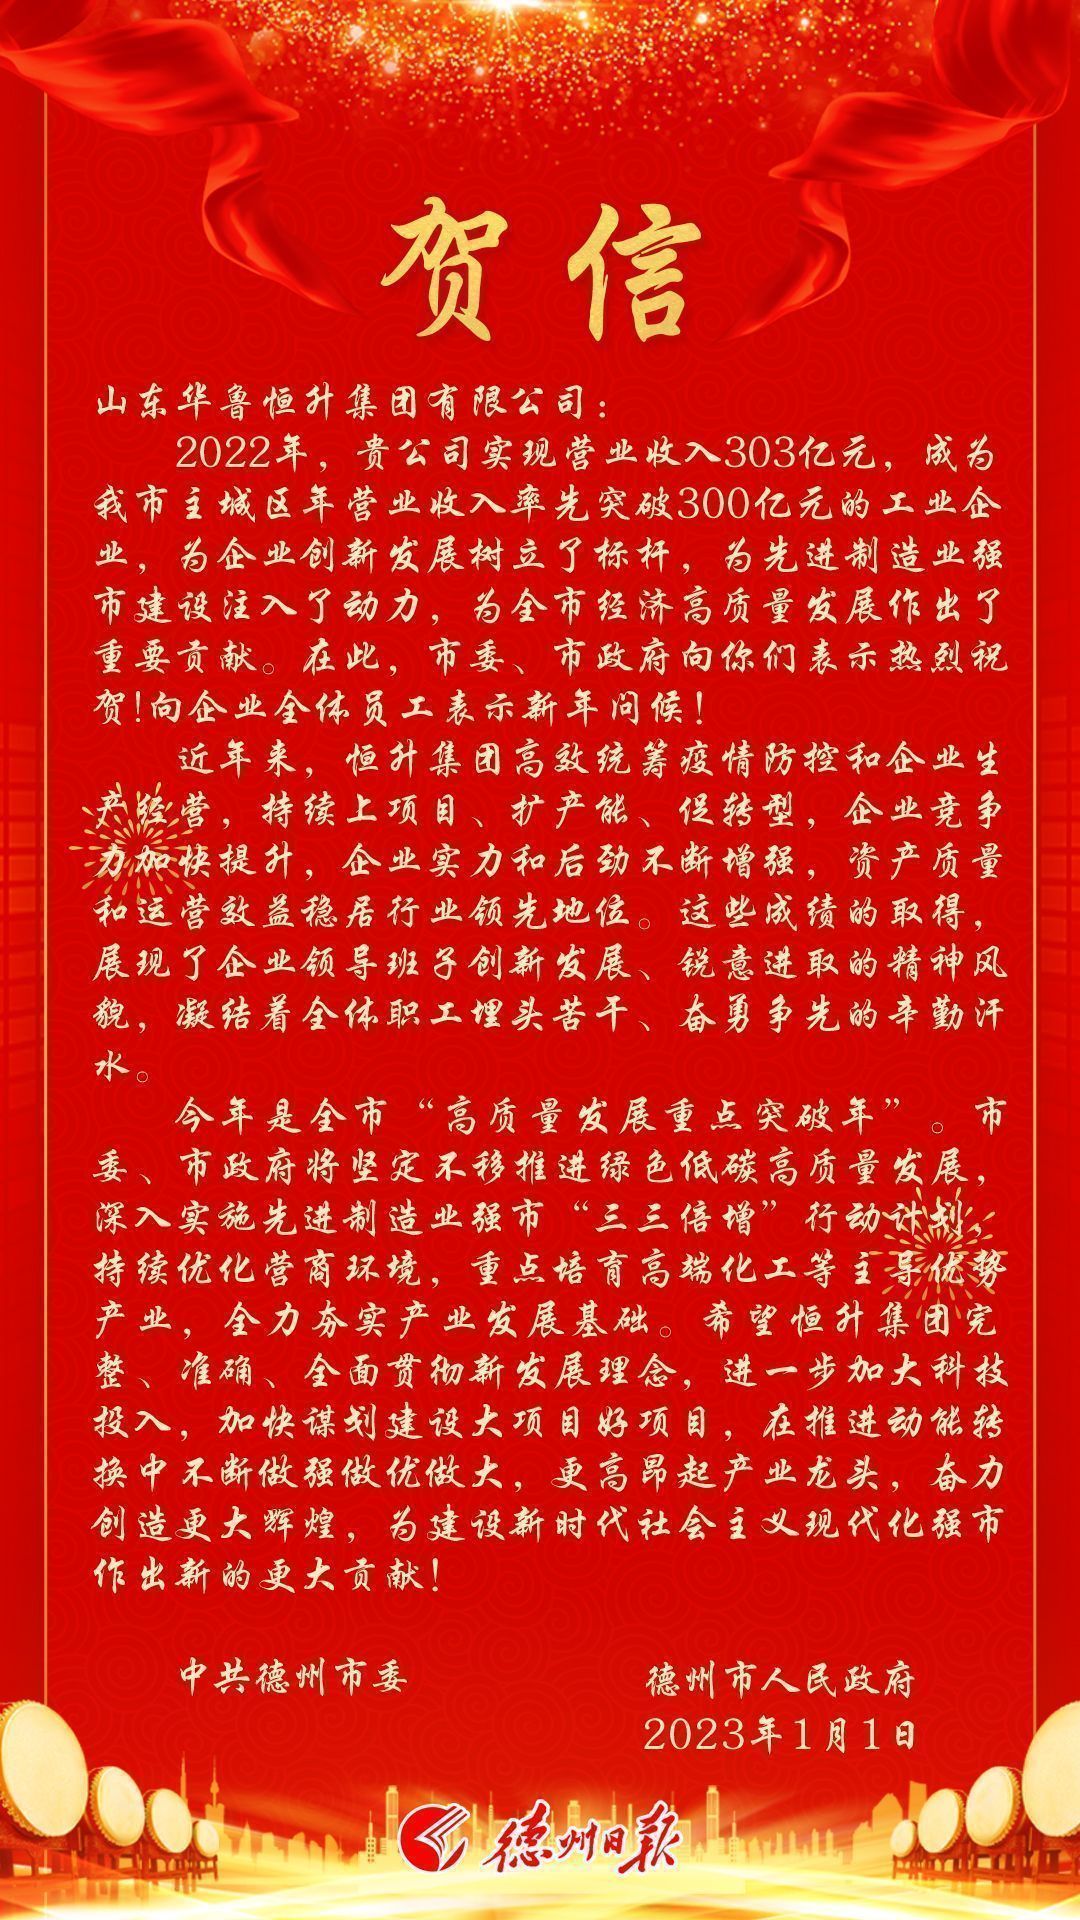 贺信
山东华鲁恒升集团有限公司：
2022年，贵公司实现营业收入303亿元，成为
我市主城区年营业收入率先突破300亿元的工业企
业，为企业创新发展树立了标杆，为先进制造业强
市建设注入了动力，为全市经济高质量发展作出了
重要贡献。在此，市委、市政府向你们表示热烈祝
贺!向企业全体员工表示新年问候!
近年来，恒升集团高效统筹疫情防控和企业生
产经营，持续上项目、扩产能、促转型，企业竞争
力加快提升，企业实力和后劲不断增强，资产质量
和运营效益稳居行业领先地位。这些成绩的取得，
展现了企业领导班子创新发展、锐意进取的精神风
貌，凝结着全体职工埋头苦干、奋勇争先的辛勤汗
水。
今年是全市“高质量发展重点突破年”。市
委、市政府将坚定不移推进绿色低碳高质量发展，
深入实施先进制造业强市“三三倍增”行动计划，
持续优化营商环境，重点培育高端化工等主导优势
产业，全力夯实产业发展基础。希望恒升集团完
整、准确、全面贯彻新发展理念，进一步加大科技
投入，加快谋划建设大项目好项目，在推进动能转
换中不断做强做优做大，更高昂起产业龙头，奋力
创造更大辉煌，为建设新时代社会主义现代化强市
作出新的更大贡献!
中共德州市委 德州市人民政府
2023年1月1日
德州日报